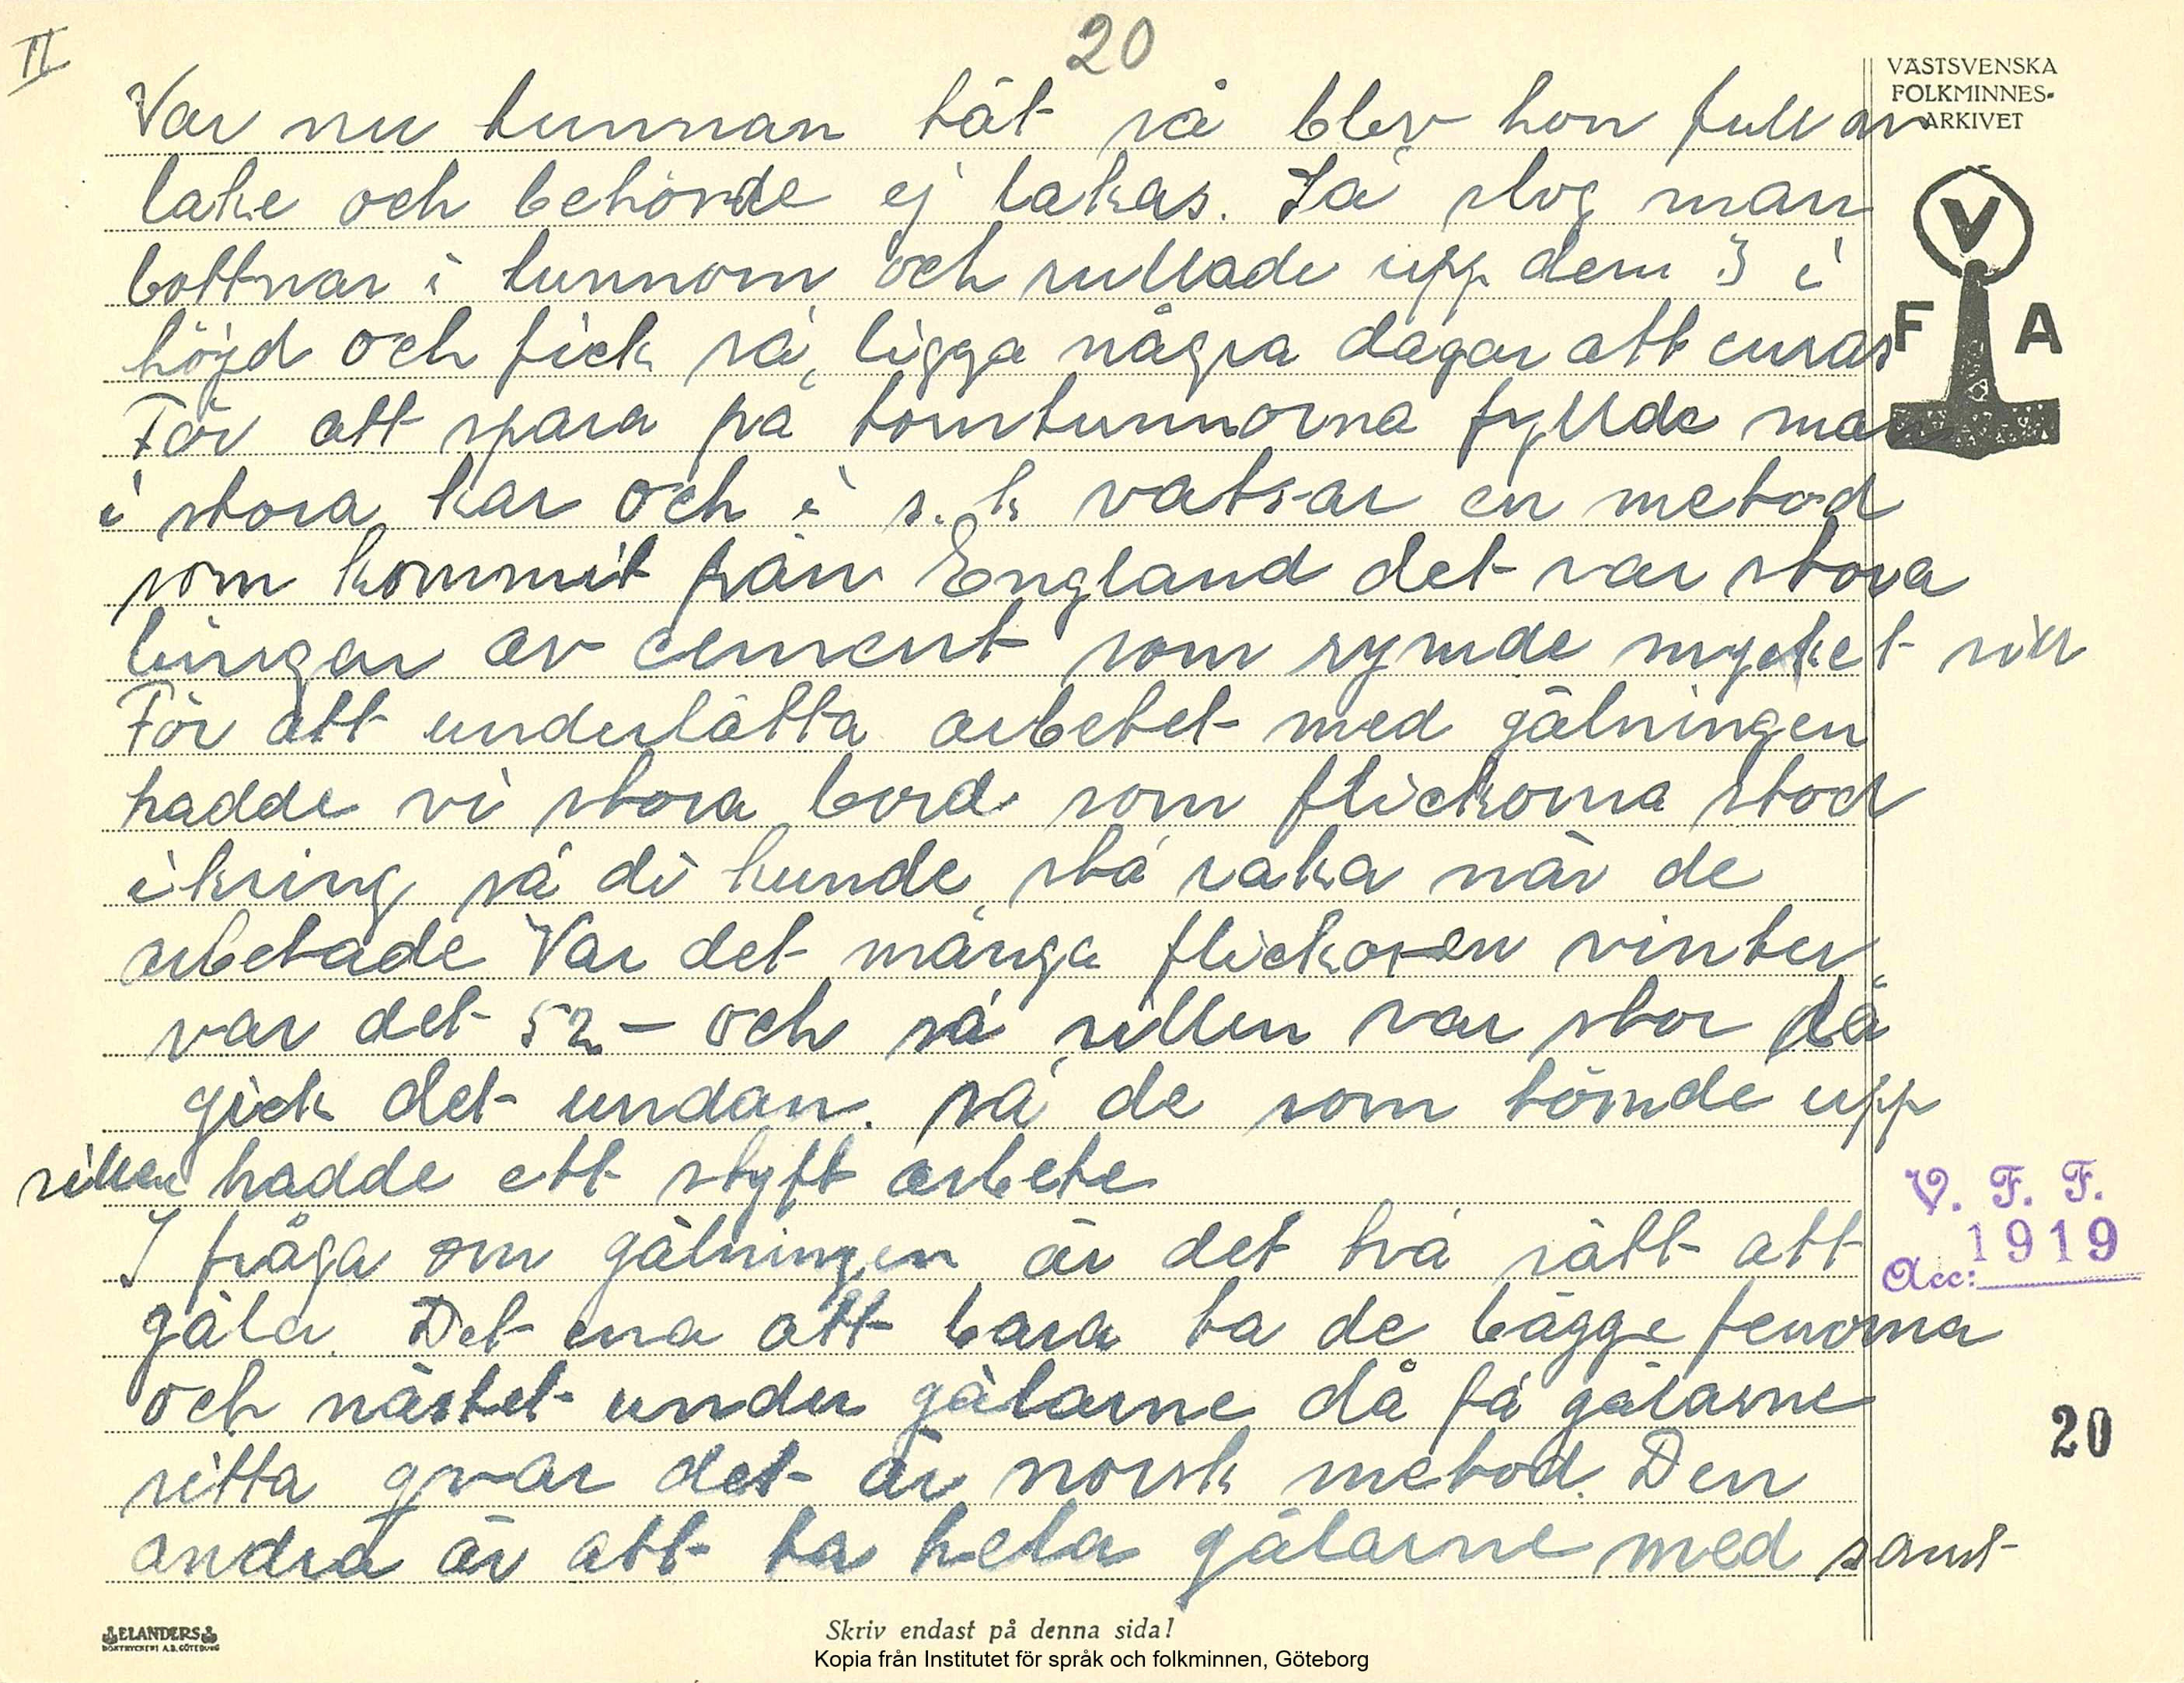 II
20
VÄSTSVENSKA
FOLKMINNES-
ARKIVET
V
F A
Var nu tunnan tät så blev hon full av
lake och behövde ej lakas. Så slog man
bottnar i tunnorn och rullade upp dem 3 i
höjd och fick så ligga några dagar att curas
För att spara på tomtunnorna fyllde man
i stora kar och i s.k vatsar en metod
som kommit från England det var stora
bingar av cement som rymde mycket sill
För att underlätta arbetet med gälningen
hadde vi stora bord som flickorna stod
ikring så di kunde stå raka när de
arbetade Var det många flickor en vinter
var det 52 – och så sillen var stor då
gick det undan. så de som tömde upp
sillen hadde ett styft arbete
I fråga om gälningen är det två sätt att
gäla. Det ena att bara ta de bägge fenorna
och nästet under gälarne då få gälarne
sitta qvar det är norsk metod. Den
andra är att ta hela gälarne med samt
V. F. F.
Acc: 1919
20
ELANDERS
BOKTRYCKERI A.B. GÖTEBORG
Skriv endast på denna sida!
Kopia från Institutet för språk och folkminnen, Göteborg